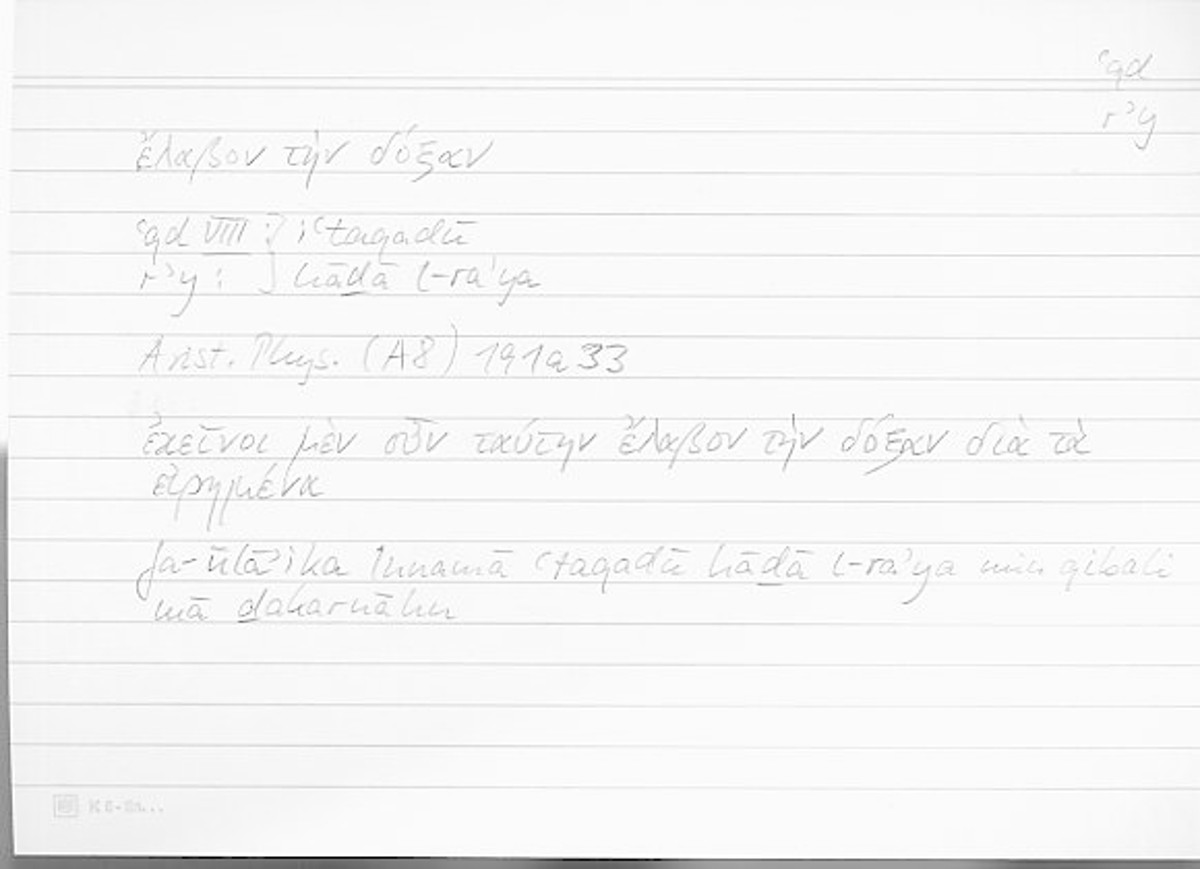 ʿqd
rʾy
ἔλαβον τὴν δόξαν
ʿqd VIII : } iʿtaqadū
rʾy : } hāḏā l-raʾya
Arist. Phys. (A8) 191a33
ἐκεῖνοι μὲν οὖν ταύτην ἔλαβον τὴν δόξαν διὰ τὰ
εἰρημένα
fa-ūlāʾika innamā ʿtaqadū hāḏā l-raʾya min qibali
mā ḏakarnāhu